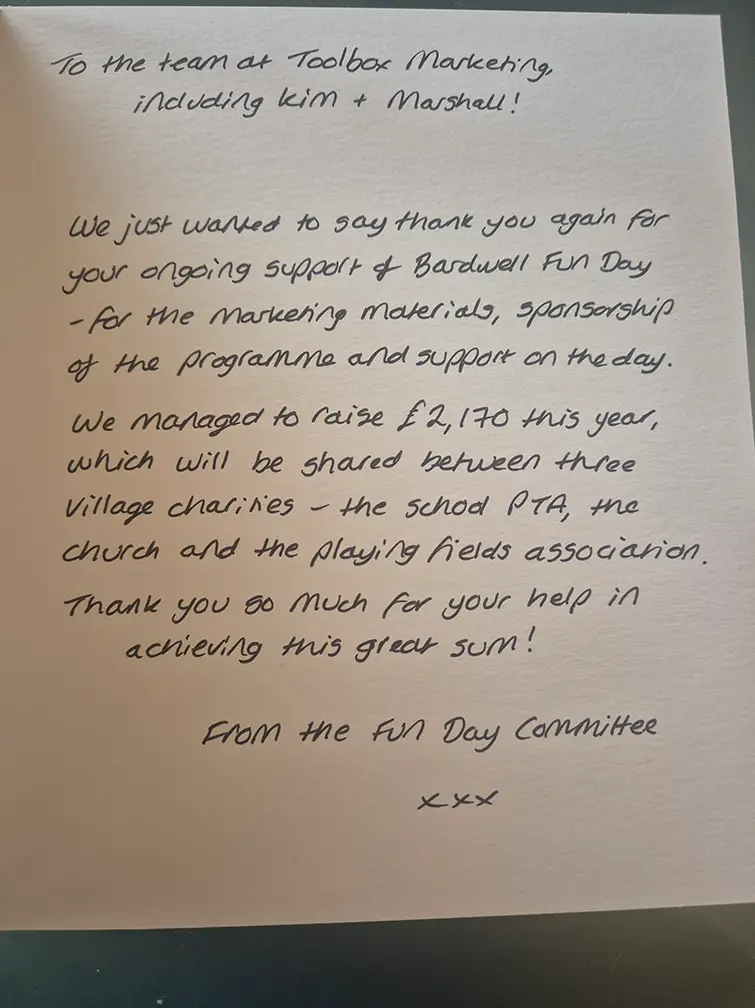 To the team at Toolbox Marketing,
including Kim + Marshall!
We just wanted to say thank you again for
your ongoing support of Bardwell Fun Day
- for the marketing materials, sponsorship
of the programme and support on the day.
We managed to raise £2,170 this year,
which will be shared between three
village charities - the school PTA, the
church and the playing fields association.
Thank you so much for your help in
achieving this great sum!
From the Fun Day Committee
xxx